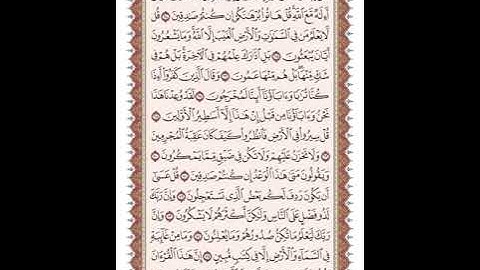 أَءِلَٰهٌ مَّعَ ٱللَّهِ قُلْ هَاتُوا۟ بُرْهَٰنَكُمْ إِن كُنتُمْ صَٰدِقِينَ ۝ قُل
لَّا يَعْلَمُ مَن فِي ٱلسَّمَٰوَٰتِ وَٱلْأَرْضِ ٱلْغَيْبَ إِلَّا ٱللَّهُ وَمَا يَشْعُرُونَ
أَيَّانَ يُبْعَثُونَ ۝ بَلِ ٱدَّٰرَكَ عِلْمُهُمْ فِي ٱلْءَاخِرَةِ بَلْ هُمْ فِي
شَكٍّ مِّنْهَا بَلْ هُم مِّنْهَا عَمُونَ ۝ وَقَالَ ٱلَّذِينَ كَفَرُوٓا۟ أَءِذَا
كُنَّا تُرَٰبًا وَءَابَآؤُنَآ أَئِنَّا لَمُخْرَجُونَ ۝ لَقَدْ وُعِدْنَا هَٰذَا
نَحْنُ وَءَابَآؤُنَا مِن قَبْلُ إِنْ هَٰذَآ إِلَّآ أَسَٰطِيرُ ٱلْأَوَّلِينَ ۝
قُلْ سِيرُوا۟ فِي ٱلْأَرْضِ فَٱنظُرُوا۟ كَيْفَ كَانَ عَٰقِبَةُ ٱلْمُجْرِمِينَ
۝ وَلَا تَحْزَنْ عَلَيْهِمْ وَلَا تَكُن فِي ضَيْقٍ مِّمَّا يَمْكُرُونَ ۝
وَيَقُولُونَ مَتَىٰ هَٰذَا ٱلْوَعْدُ إِن كُنتُمْ صَٰدِقِينَ ۝ قُلْ عَسَىٰٓ
أَن يَكُونَ رَدِفَ لَكُم بَعْضُ ٱلَّذِي تَسْتَعْجِلُونَ ۝ وَإِنَّ رَبَّكَ
لَذُو فَضْلٍ عَلَى ٱلنَّاسِ وَلَٰكِنَّ أَكْثَرَهُمْ لَا يَشْكُرُونَ ۝ وَإِنَّ
رَبَّكَ لَيَعْلَمُ مَا تُكِنُّ صُدُورُهُمْ وَمَا يُعْلِنُونَ ۝ وَمَا مِنْ غَآئِبَةٍ
فِي ٱلسَّمَآءِ وَٱلْأَرْضِ إِلَّا فِي كِتَٰبٍ مُّبِينٍ ۝ إِنَّ هَٰذَا ٱلْقُرْءَانَ